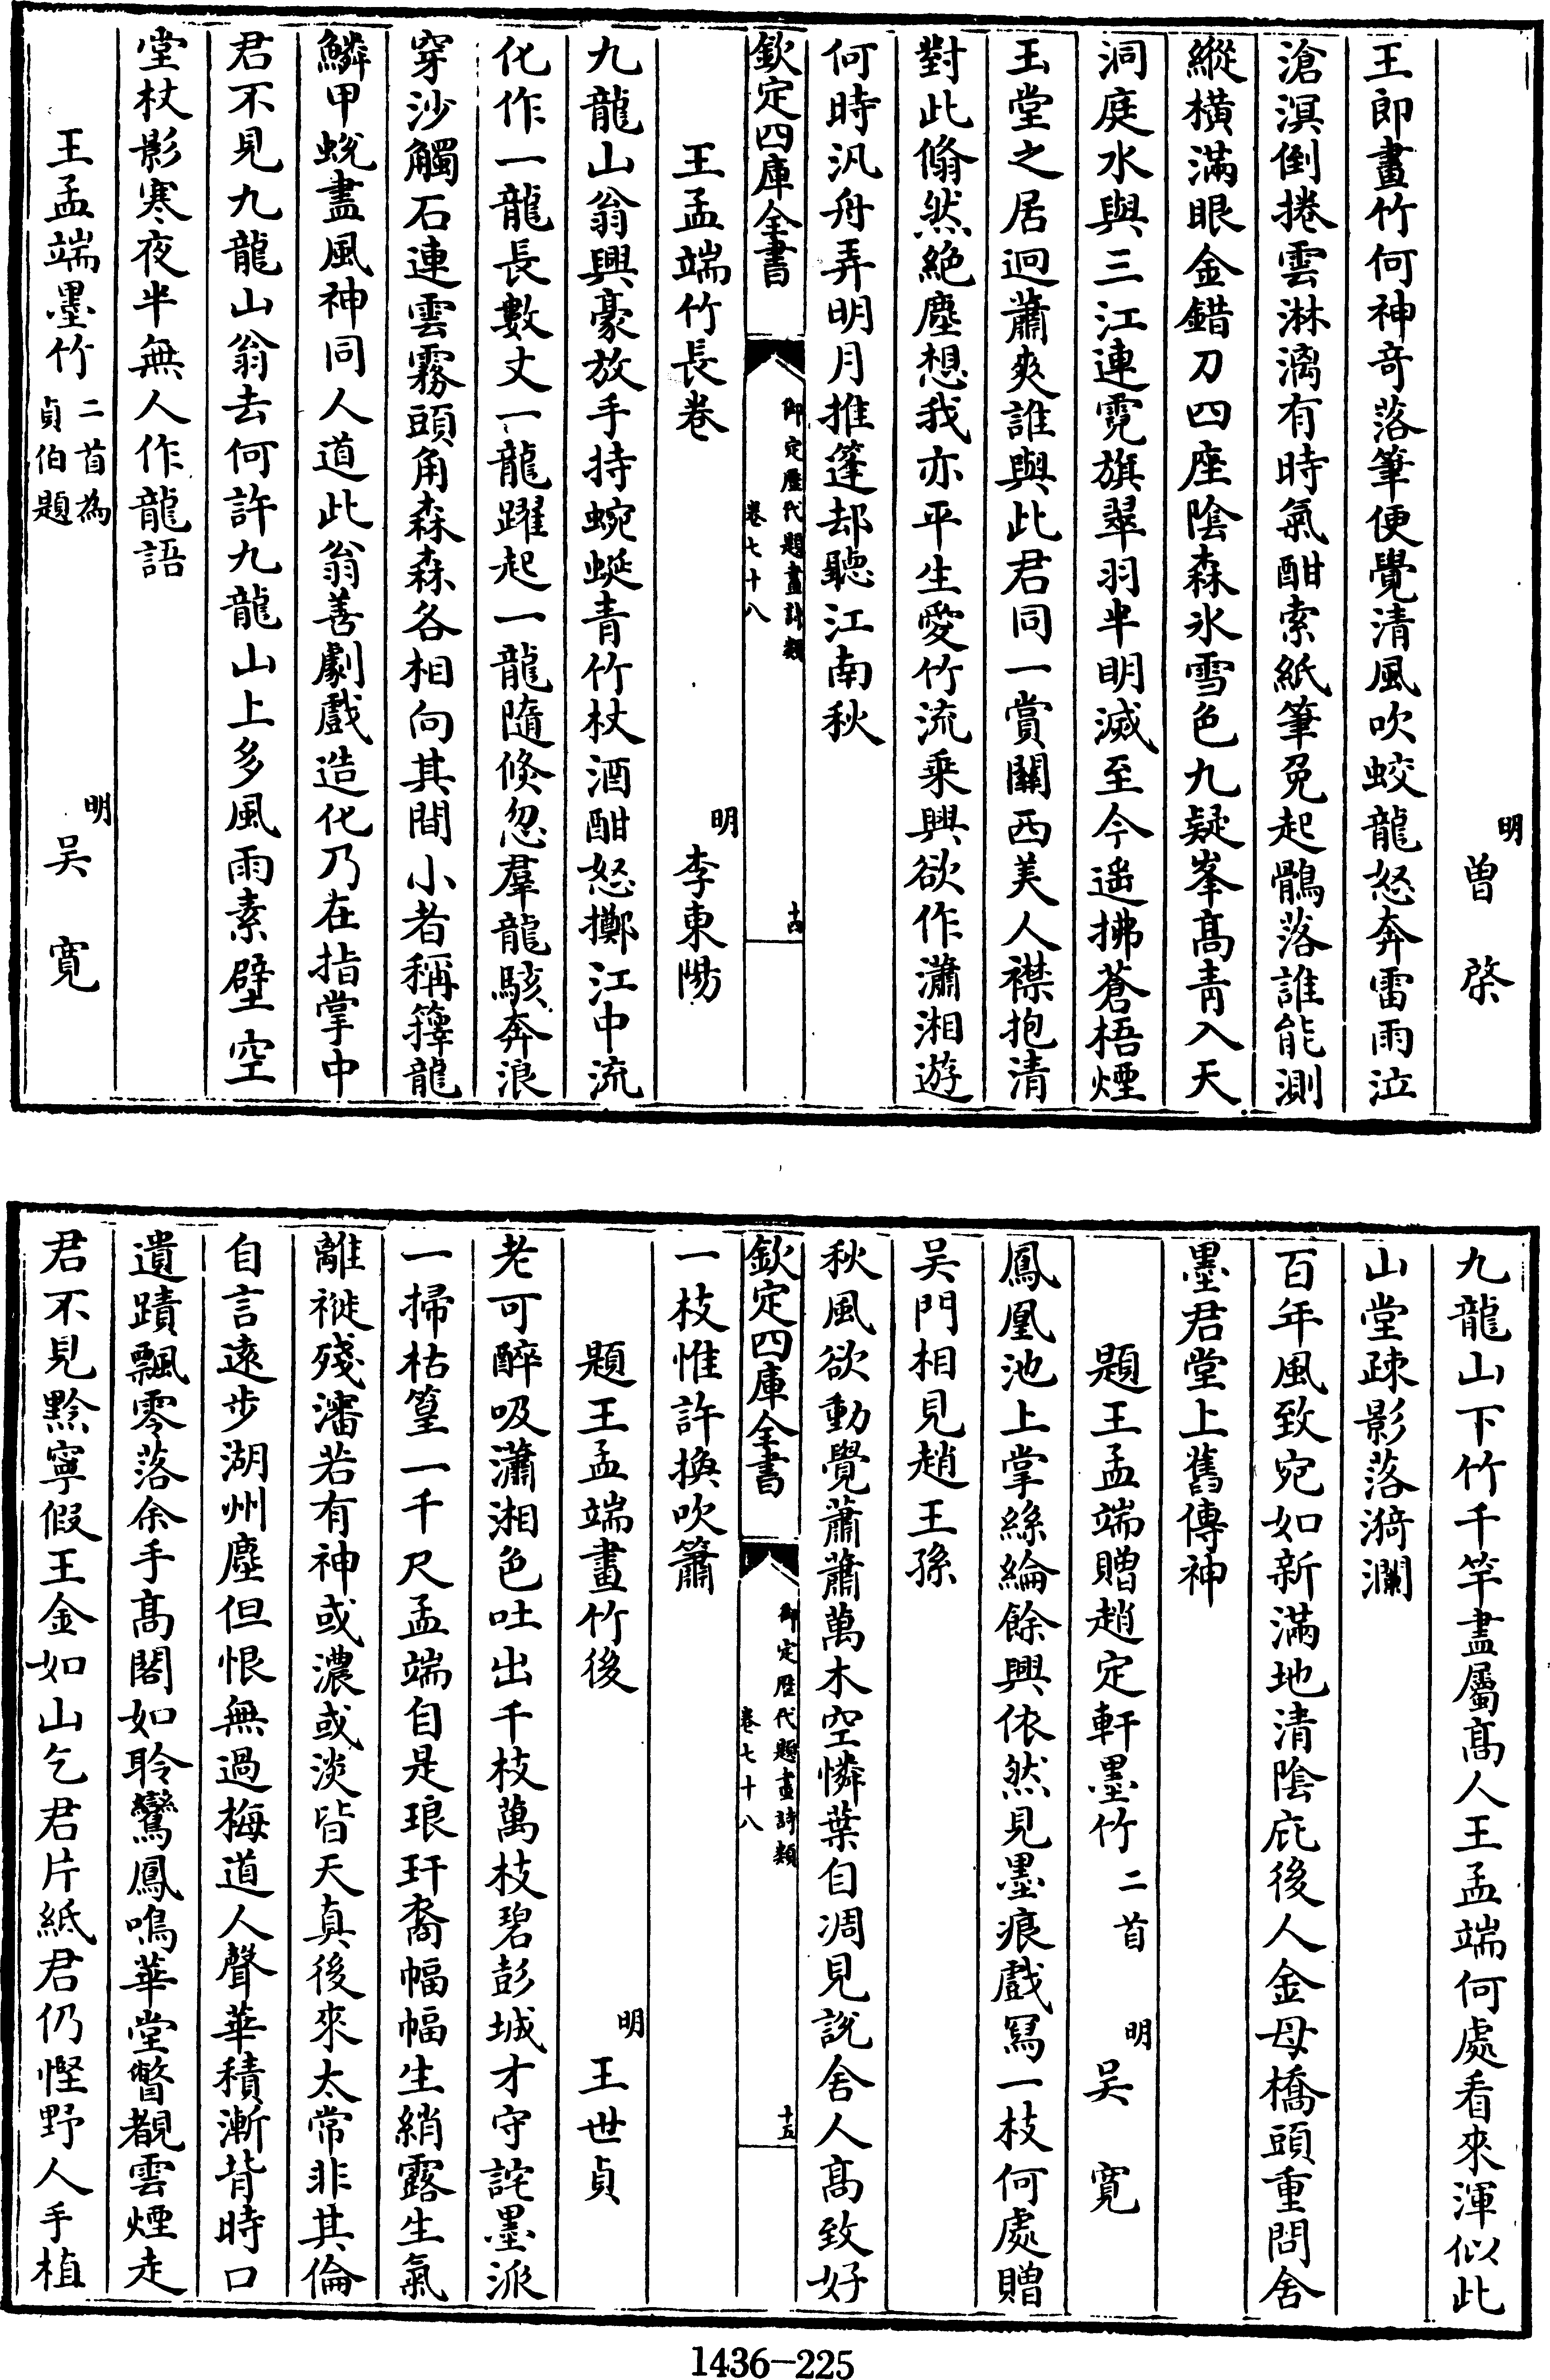 明曽棨
王郎畫竹何神竒落筆便覺清風吹蛟龍怒奔雷雨泣
滄溟倒捲雲淋漓有時氣酣索紙筆兔起鶻落誰能測
縱橫滿眼金錯刀四座陰森氷雪色九疑峯髙青入天
洞庭水與三江連霓旗翠羽半明滅至今遥拂蒼梧煙
玉堂之居迥蕭爽誰與此君同一賞關西美人襟抱清
對此翛然絶塵想我亦平生愛竹流乗興欲作瀟湘遊
何時汎舟弄明月推篷却聽江南秋
欽定四庫全書
御定歴代題畫詩類
卷七十八
十四
王孟端竹長卷
明李東陽
九龍山翁興豪放手持蜿蜒青竹杖酒酣怒擲江中流
化作一龍長數丈一龍躍起一龍隨倐忽羣龍駭奔浪
穿沙觸石連雲霧頭角森森各相向其間小者稱籜龍
鱗甲蛻盡風神同人道此翁善劇戲造化乃在指掌中
君不見九龍山翁去何許九龍山上多風雨素壁空
堂杖影寒夜半無人作龍語
王孟端墨竹
二首為
貞伯題
明吴寛
九龍山下竹千竿盡屬髙人王孟端何處看來渾似此
山堂疎影落漪瀾
百年風致宛如新滿地清陰庇後人金母橋頭重問舍
墨君堂上舊傳神
題王孟端贈趙定軒墨竹二首
明吴寛
鳳凰池上掌絲綸餘興依然見墨痕戲冩一枝何處贈
吴門相見趙王孫
秋風欲動覺蕭蕭萬木空憐葉自凋見説舍人髙致好
欽定四庫全書
御定歴代題畫詩類
卷七十八
十五
一枝惟許換吹簫
題王孟端畫竹後
明王世貞
老可醉吸瀟湘色吐出千枝萬枝碧彭城才守詫墨派
一掃枯篁一千尺孟端自是琅玕裔幅幅生綃露生氣
離褷殘瀋若有神或濃或淡皆天真後來太常非其倫
自言逺步湖州塵但恨無過梅道人聲華積漸背時口
遺蹟飄零落余手髙閣如聆鸞鳳鳴華堂瞥覩雲煙走
君不見黔寧假王金如山乞君片紙君仍慳野人手植
1436-225